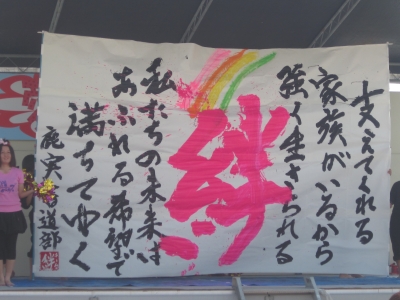 支えてくれる
家族がいるから
強く生きられる
絆
私たちの未来は
あふれる希望で
満ちてゆく
鹿実書道部